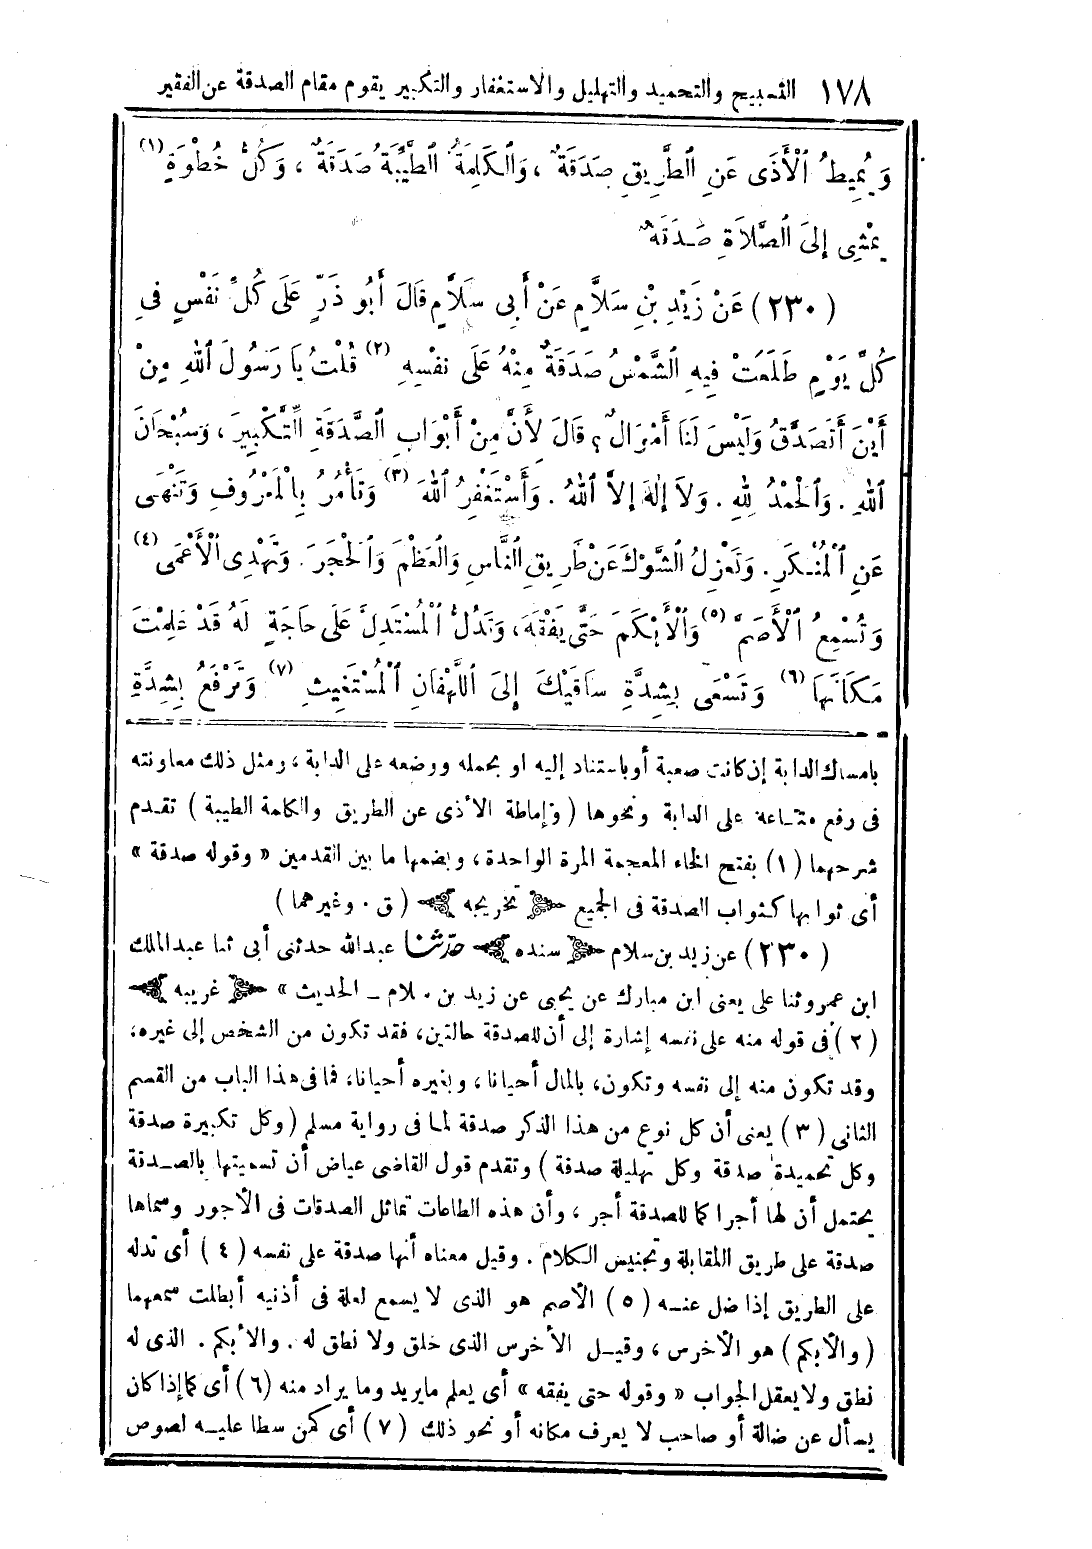 ١٧٨ التسبيح والتحميد والتهليل والاستغفار والتكبير يقوم مقام الصدقة عن الفقير
وَيُمِيطُ ٱلْأَذَى عَنِ ٱلطَّرِيقِ صَدَقَةٌ، وَٱلْكَلِمَةُ ٱلطَّيِّبَةُ صَدَقَةٌ، وَكُلُّ خُطْوَةٍ (١)
يَمْشِى إِلَى ٱلصَّلَاةِ صَدَقَةٌ
(٢٣٠) عَنْ زَيْدِ بْنِ سَلَّامٍ عَنْ أَبِى سَلَّامٍ قَالَ أَبُو ذَرٍّ عَلَى كُلِّ نَفْسٍ فِى
كُلِّ يَوْمٍ طَلَعَتْ فِيهِ ٱلشَّمْسُ صَدَقَةٌ مِنْهُ عَلَى نَفْسِهِ (٢) قُلْتُ يَا رَسُولَ ٱللهِ مِنْ
أَيْنَ أَتَصَدَّقُ وَلَيْسَ لَنَا أَمْوَالٌ؟ قَالَ لِأَنَّ مِنْ أَبْوَابِ ٱلصَّدَقَةِ ٱلتَّكْبِيرَ، وَسُبْحَانَ
ٱللهِ. وَٱلْحَمْدُ لِلهِ. وَلَا إِلٰهَ إِلَّا ٱللهُ. وَأَسْتَغْفِرُ ٱللهَ (٣) وَتَأْمُرُ بِالْمَعْرُوفِ وَتَنْهَى
عَنِ ٱلْمُنْكَرِ. وَتَعْزِلُ ٱلشَّوْكَ عَنْ طَرِيقِ ٱلنَّاسِ وَٱلْعَظْمَ وَٱلْحَجَرَ. وَتَهْدِى ٱلْأَعْمَى (٤)
وَتُسْمِعُ ٱلْأَصَمَّ (٥) وَٱلْأَبْكَمَ حَتَّى يَفْقَهَ، وَتَدُلُّ ٱلْمُسْتَدِلَّ عَلَى حَاجَةٍ لَهُ قَدْ عَلِمْتَ
مَكَانَهَا (٦) وَتَسْعَى بِشِدَّةِ سَاقَيْكَ إِلَى ٱللَّهْفَانِ ٱلْمُسْتَغِيثِ (٧) وَتَرْفَعُ بِشِدَّةِ
بامساك الدابة إن كانت صعبة أو باستناد إليه او بحمله ووضعه على الدابة، ومثل ذلك معاونته
فى رفع متاعه على الدابة ونحوها (وإماطة الأذى عن الطريق والكلمة الطيبة) تقدم
شرحهما (١) بفتح الخاء المعجمة المرة الواحدة، وبضمها ما بين القدمين «وقوله صدقة»
أى ثوابها كثواب الصدقة فى الجميع تخريجه (ق. وغيرهما)
(٢٣٠) عن زيد بن سلام سنده حدثنا عبدالله حدثنى أبى ثنا عبدالملك
ابن عمرو ثنا على يعنى ابن مبارك عن يحيى عن زيد بن سلام ـ الحديث» غريبه
(٢) فى قوله منه على نفسه إشارة إلى أن للصدقة حالتين، فقد تكون من الشخص إلى غيره،
وقد تكون منه إلى نفسه وتكون، بالمال أحيانا، وبغيره أحيانا، فما فى هذا الباب من القسم
الثانى (٣) يعنى أن كل نوع من هذا الذكر صدقة لما فى رواية مسلم (وكل تكبيرة صدقة
وكل تحميدة صدقة وكل تهليلة صدقة) وتقدم قول القاضى عياض أن تسميتها بالصدقة
يحتمل أن لها أجرا كما للصدقة أجر، وأن هذه الطاعات تماثل الصدقات فى الأجور وسماها
صدقة على طريق المقابلة وتجنيس الكلام. وقيل معناه أنها صدقة على نفسه (٤) أى تدله
على الطريق إذا ضل عنه (٥) الأصم هو الذى لا يسمع لعلة فى أذنيه أبطلت سمعهما
(والأبكم) هو الأخرس، وقيل الأخرس الذى خلق ولا نطق له. والأبكم. الذى له
نطق ولا يعقل الجواب «وقوله حتى يفقه» أى يعلم ما يريد وما يراد منه (٦) أى كما إذا كان
يسأل عن ضالة أو صاحب لا يعرف مكانه أو نحو ذلك (٧) أى كمن سطا عليه لصوص